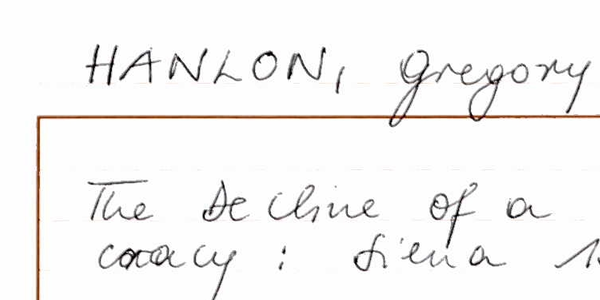 HANLON, Gregory
The Decline of a
cracy : Siena